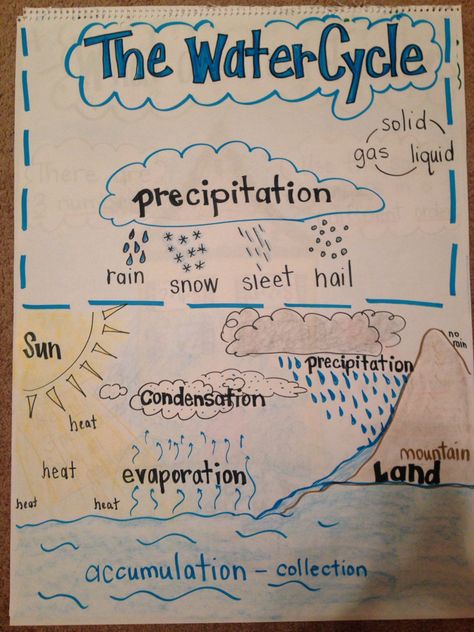 The Water Cycle
solid
gas liquid
precipitation
rain snow sleet hail
Sun
no rain
precipitation
condensation
heat
mountain
heat
evaporation
Land
heat heat
accumulation - collection